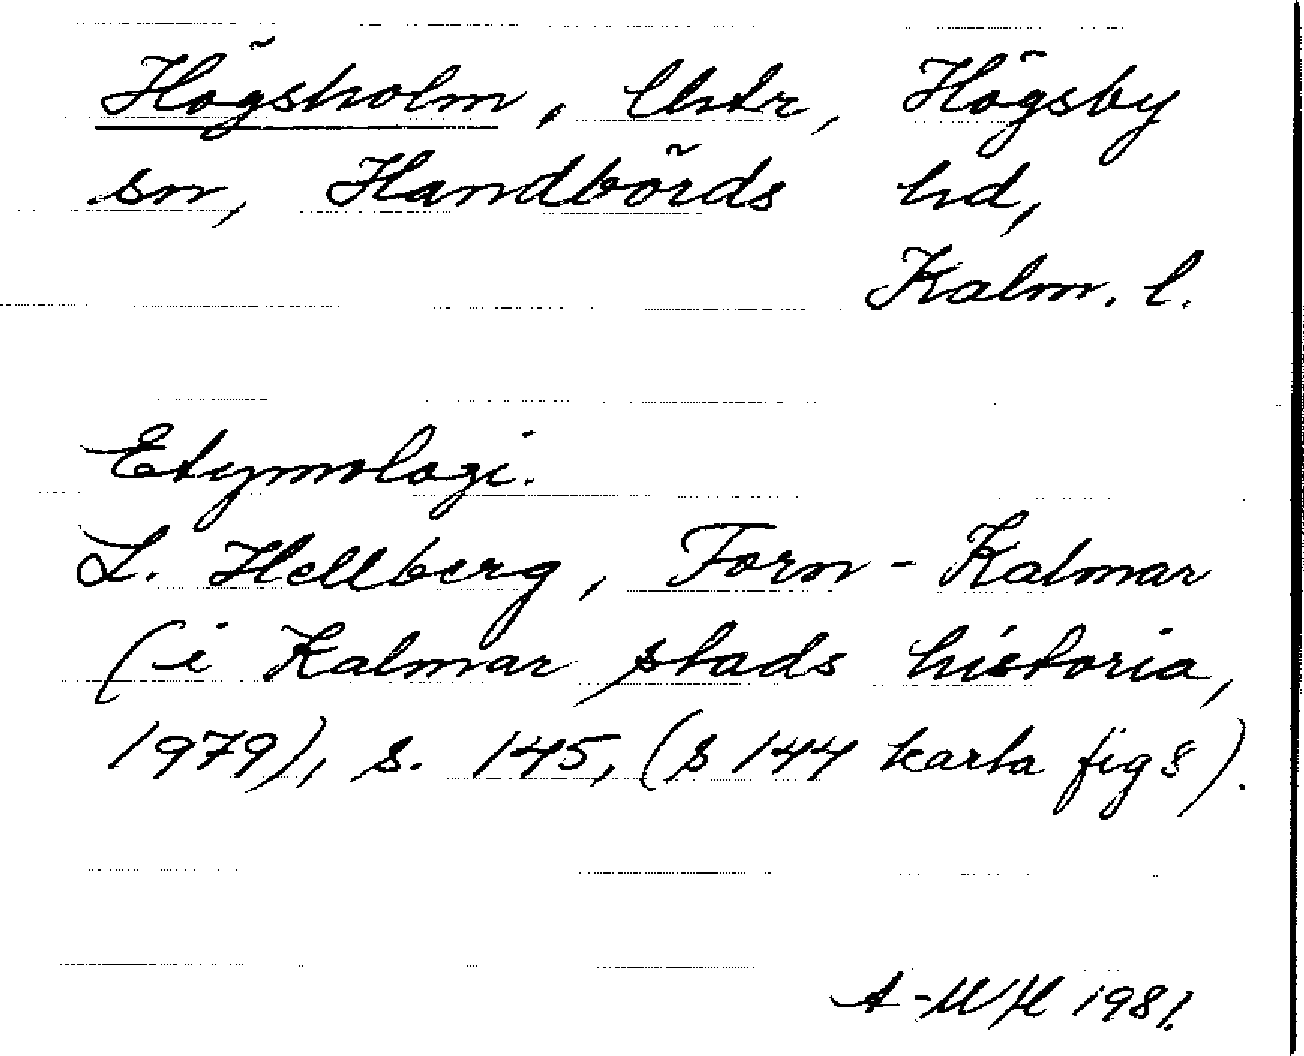 Högsholm, Untr, Högsby
sn, Handbörds hd,
Kalm. l.
Etymologi.
L. Hellberg, Forn-Kalmar
(i Kalmar stads historia,
1979), s. 145, (s 144 karta fig 8).
A-MH 1981.